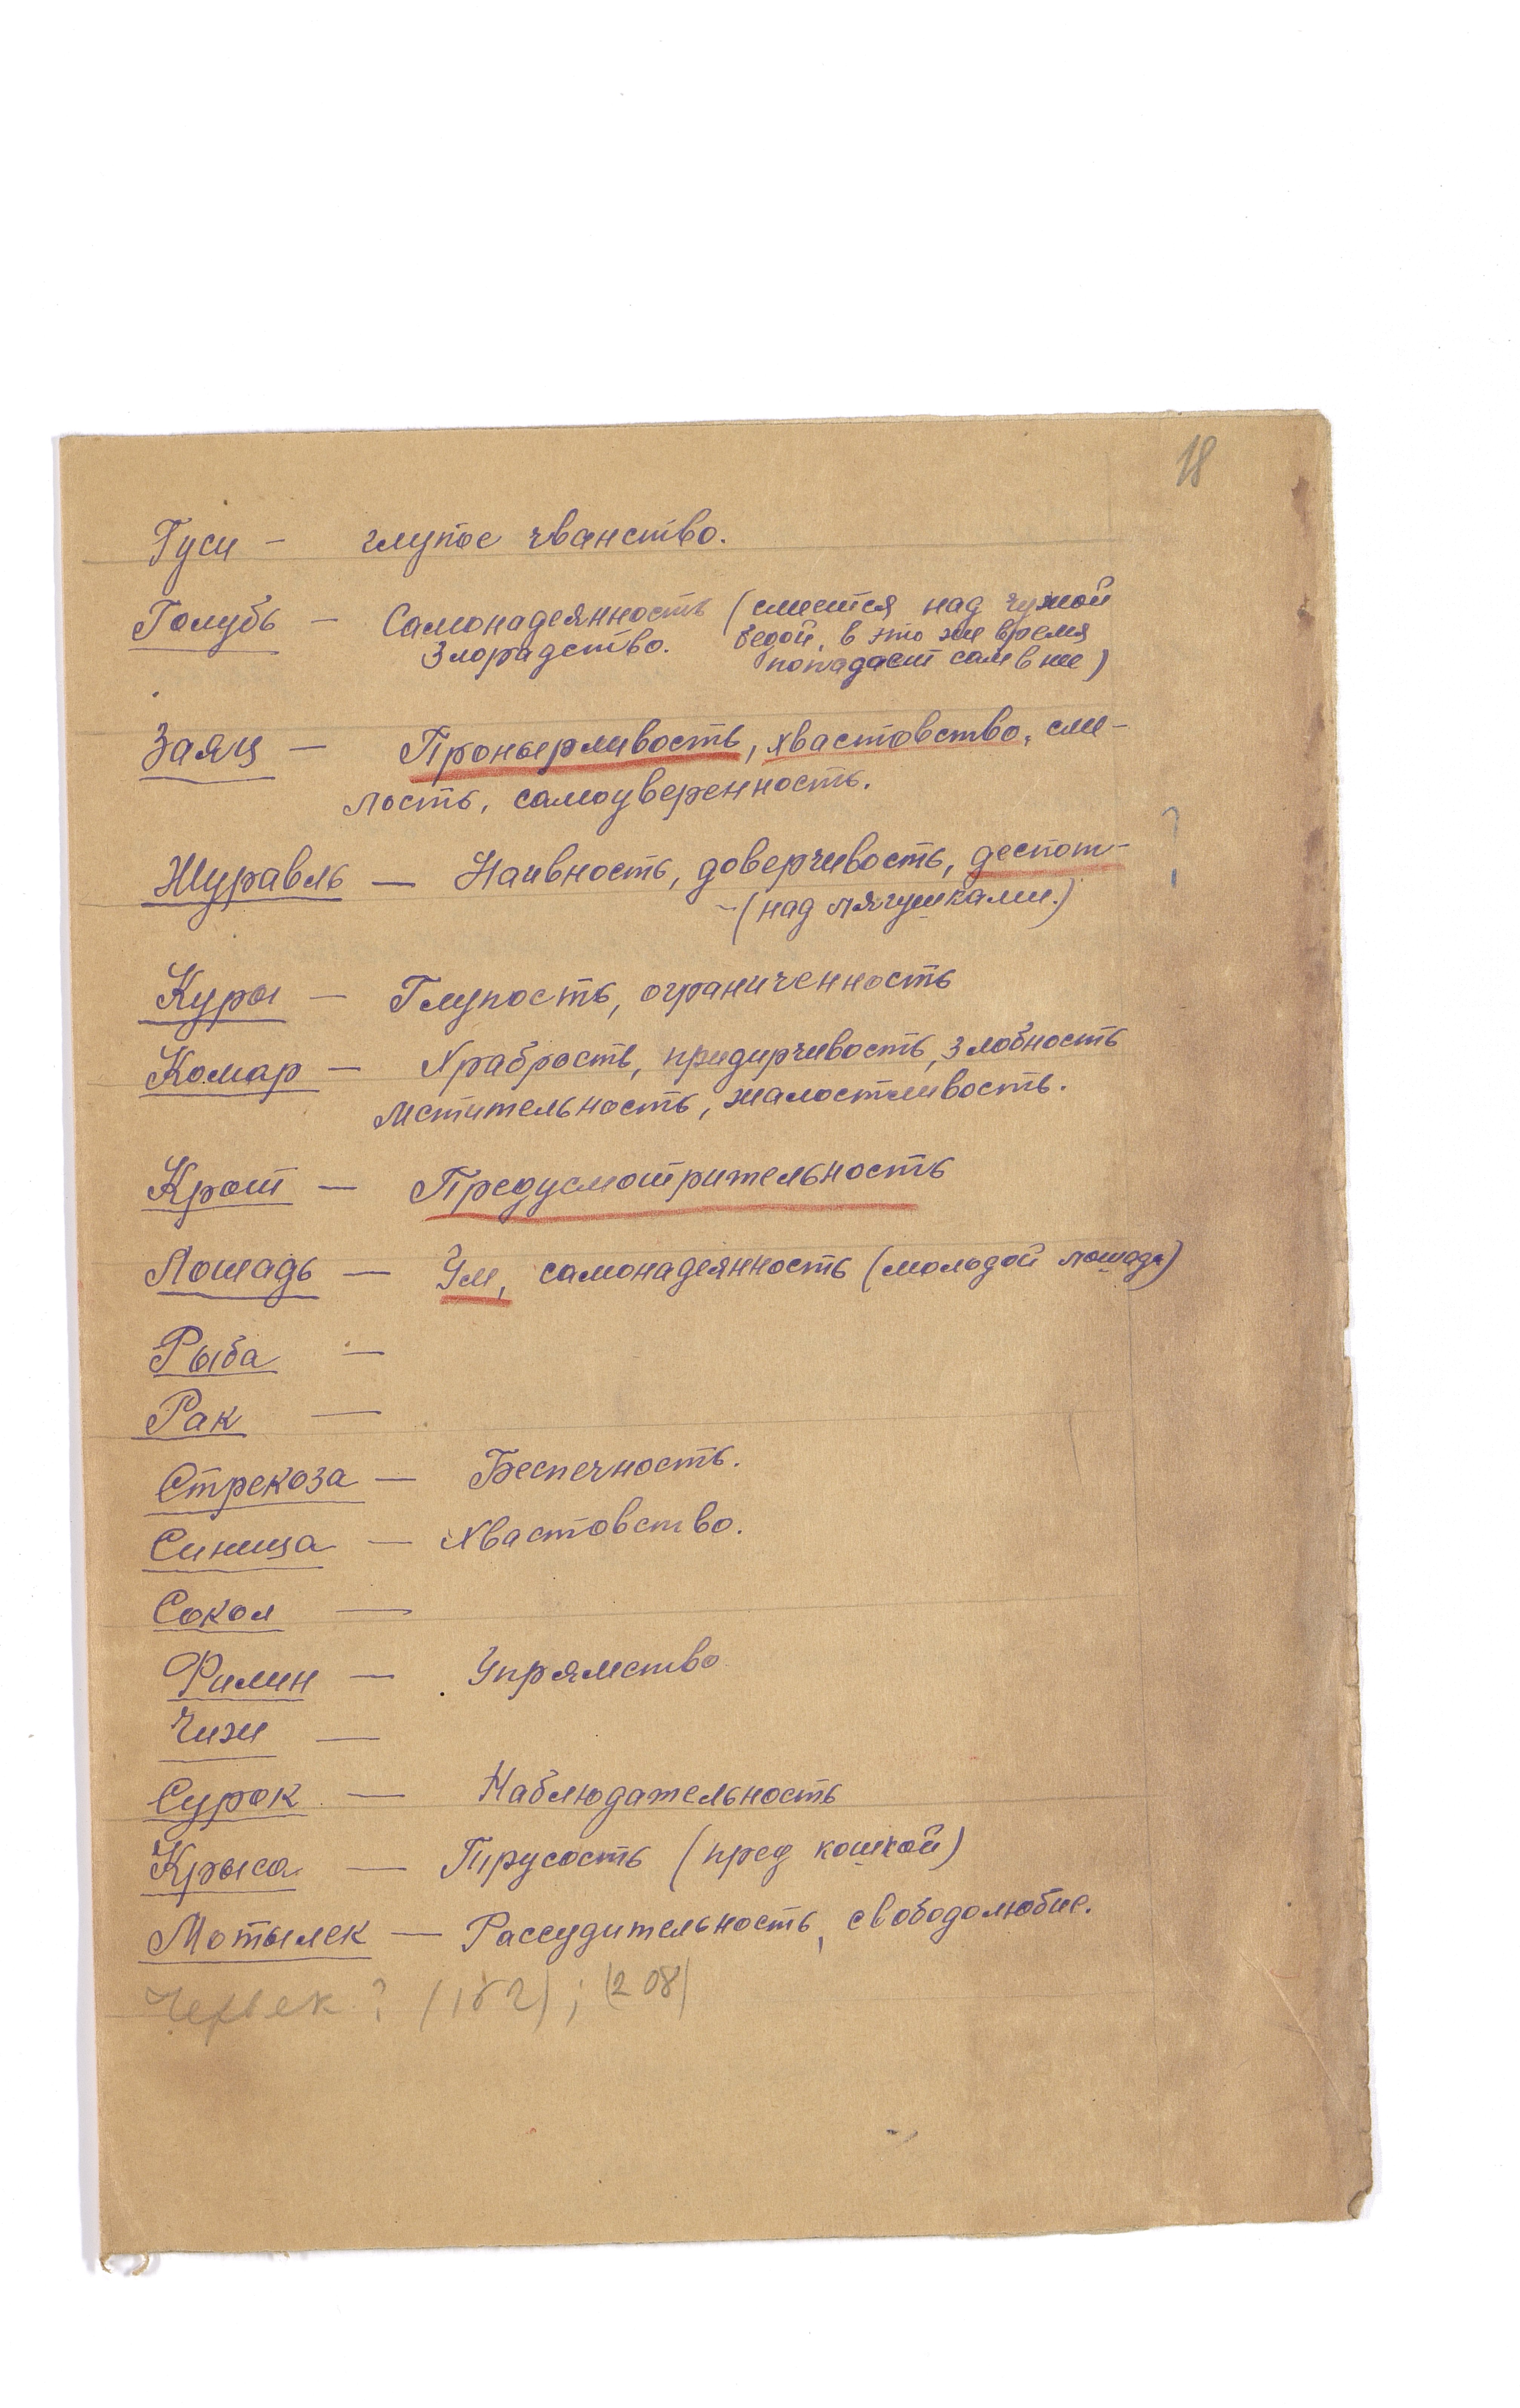 18
Гуси - глупое чванство.
Голубь - Самонадеянность (смеется над чужой
Злорадство. бедой, в это же время
попадает сам в нее)
Заяц - Пронырливость, хвастовство, сме-
лость, самоуверенность.
?
Журавль - Наивность, доверчивость, деспот-
-(над лягушками.)
Куры - Глупость, ограниченность
Комар - Храбрость, придирчивость, злобность
мстительность, жалостливость.
Крот - Предусмотрительность
Лошадь - Ум, самонадеянность (молодой лошади)
Рыба -
Рак -
Стрекоза - Беспечность.
Синица - Хвастовство.
Сокол -
Филин - Упрямство
Чижи -
Сурок - Наблюдательность
Крыса - Трусость (пред кошкой)
Мотылек - Рассудительность, свободолюбие.
Червек ? (182); (208)